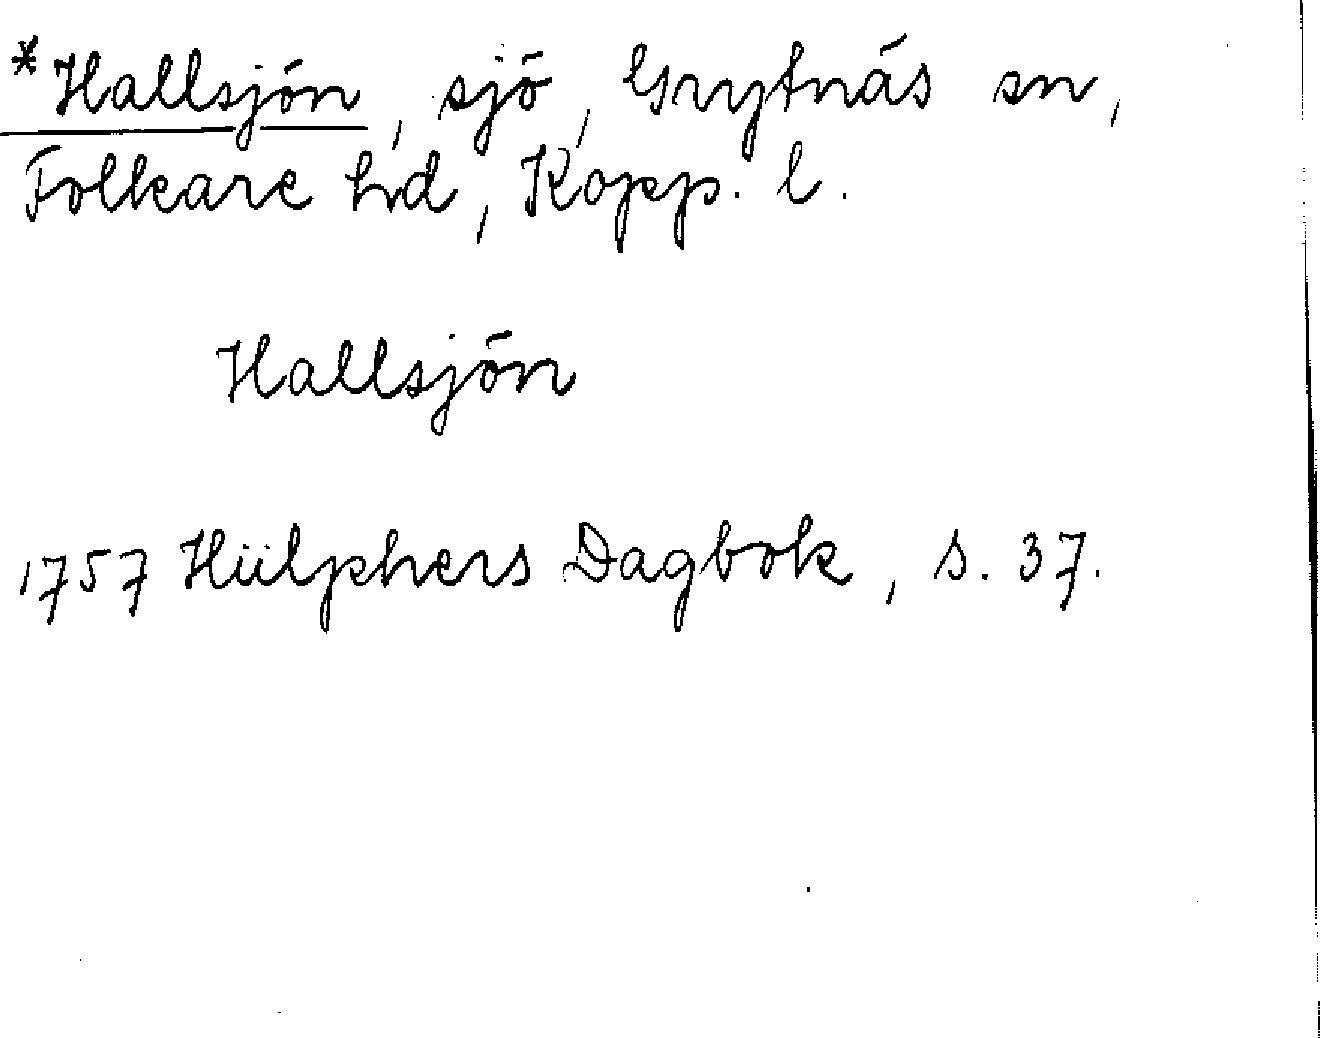 *Hallsjön, sjö, Grytnäs sn,
Folkare hd, Kopp. l.
Hallsjön
1757 Hülphers Dagbok, s. 37.